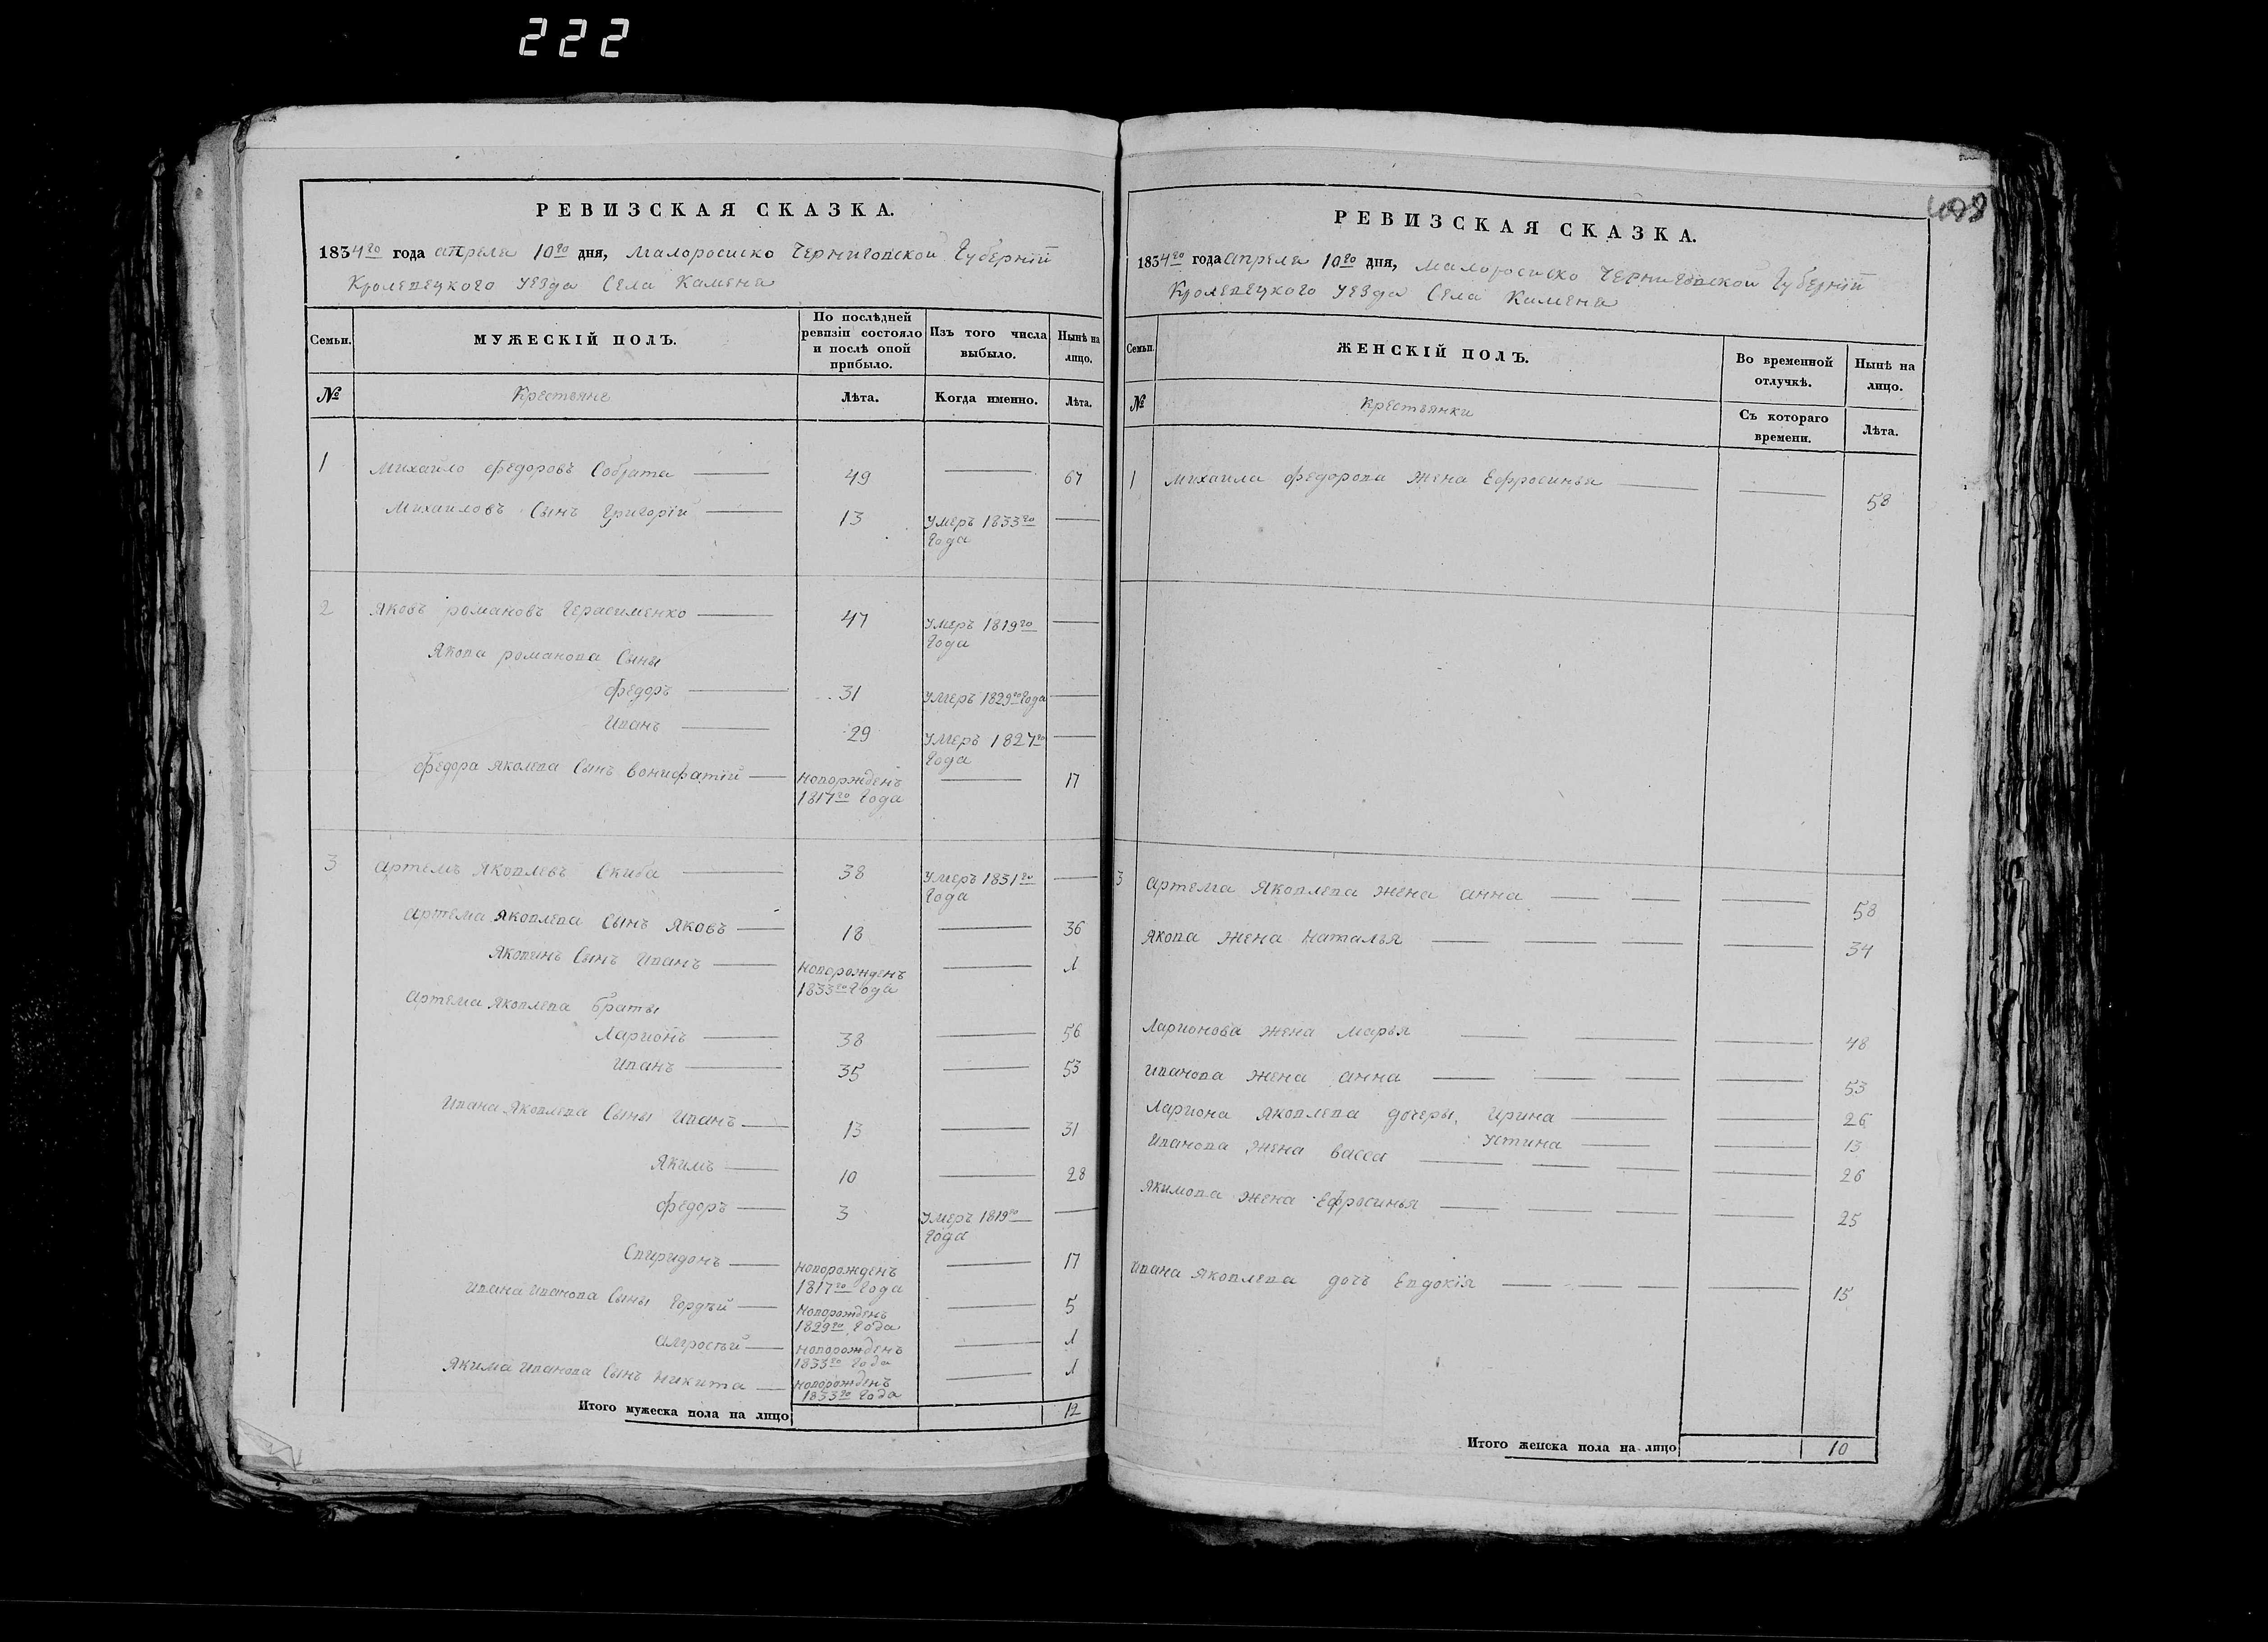 222
РЕВИЗСКАЯ СКАЗКА.
1834го года апреля 10го дня, Малоросиско Черниговской Губернїи
Кролевецкого уезда Села Каменя
Семьи.
МУЖЕСКІЙ ПОЛЪ.
По послѣдней ревизіи состояло и послѣ оной прибыло.
Изъ того числа выбыло.
Нынѣ на лицо.
№
Крестьяне
Лѣта.
Когда именно.
Лѣта.
1 Михайло федоровъ Собрата 49 67
Михаиловъ Сынъ Григорїй 13 умеръ 1833го
Года
2 Яковъ романовъ Герасименко 47 умеръ 1819го
Года
Якова романова Сыны
федоръ 31 умеръ 1829го Года
Иванъ 29 умеръ 1827го
Года
федора Яковлева Сынъ Вонифатїй новорожденъ 17
1817го Года
3 Артемъ Яковлевъ Скиба 38 умеръ 1831го
Года
Артема Яковлева Сынъ Яковъ 18 36
Яковинъ Сынъ Иванъ новорожденъ 1
1833го Года
Артема Яковлева браты
Ларионъ 38 56
Иванъ 35 53
Ивана Яковлева Сыны Иванъ 13 31
Якимъ 10 28
федоръ 3 умеръ 1819го
Года
Спиридонъ новорожденъ 17
1817го Года
Ивана Иванова Сыны Гордѣй новорожденъ 5
1829го Года
новорожденъ 1
1833го Года
Якима Иванова Сынъ Никита новорожденъ 1
1833го Года
Итого мужеска пола на лицо 12
РЕВИЗСКАЯ СКАЗКА.
1834го года апреля 10го дня, Малоросиско Черниговской Губернїи
Кролевецкого уезда Села Каменя
Семьи.
ЖЕНСКІЙ ПОЛЪ.
Во временной отлучкѣ.
Нынѣ на лицо.
№
Крестьянки
Съ котораго времени.
Лѣта.
1 Михаила федорова жена Ефросинья 58
3 Артема Яковлева жена Анна 58
Якова жена Наталья 34
Ларионова жена Марья 48
Иванова жена Анна 53
Лариона Яковлева дочеры, Ирина 26
Устина 13
Иванова жена Васса 26
Якимова жена Ефросинья 25
Ивана Яковлева дочь Евдокїя 15
Итого женска пола на лицо 10